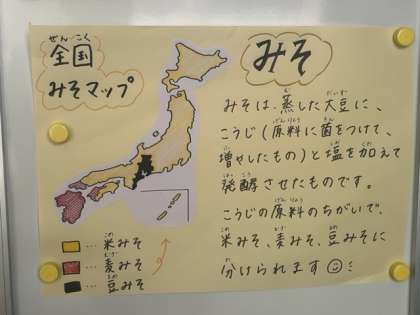 ぜんこく
全国
みそマップ
みそ
みそは、蒸した大豆に、
こうじ(原料に菌をつけて、
増やしたもの)と塩を加えて
発酵させたものです。
こうじの原料のちがいで、
米みそ、麦みそ、豆みそに
分けられます
… 米みそ
… 麦みそ
… 豆みそ